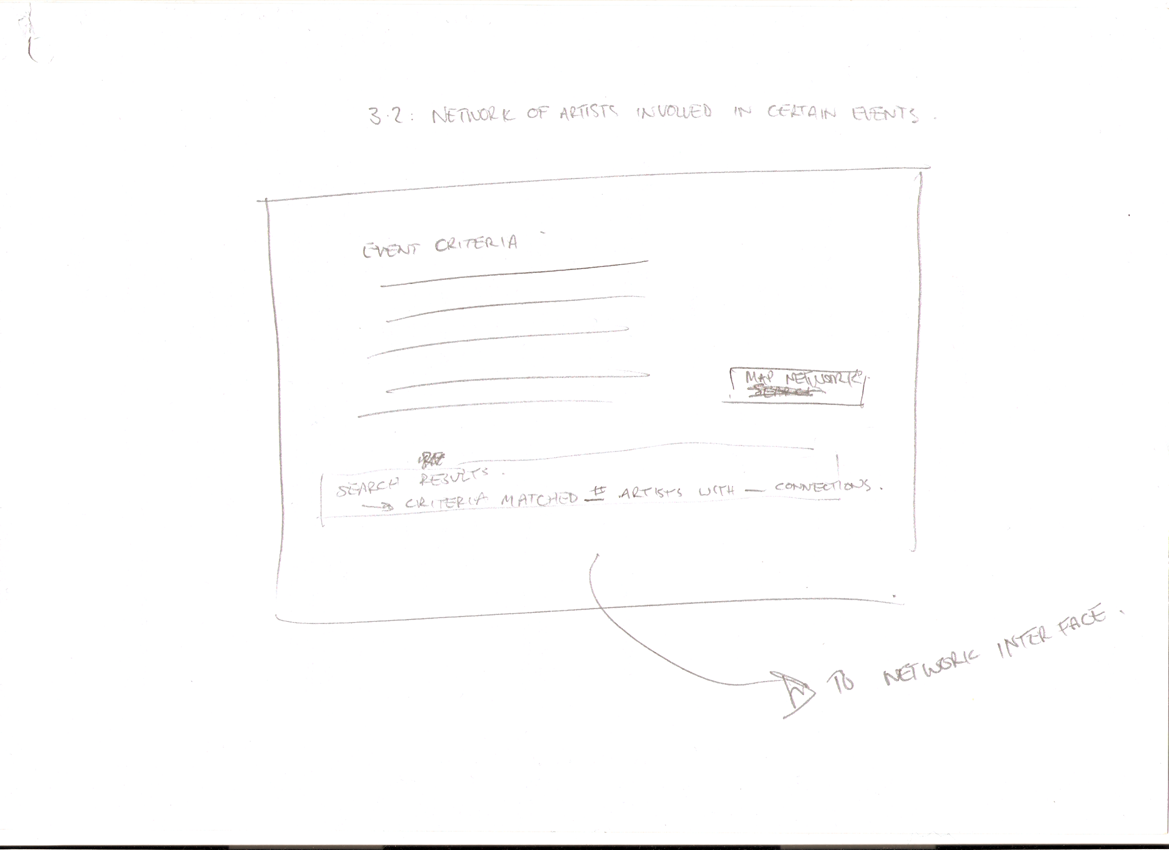 3.2: NETWORK OF ARTISTS INVOLVED IN CERTAIN EVENTS.
EVENT CRITERIA
MAP NETWORK
SEARCH RESULTS.
→ CRITERIA MATCHED # ARTISTS WITH — CONNECTIONS.
TO NETWORK INTERFACE.